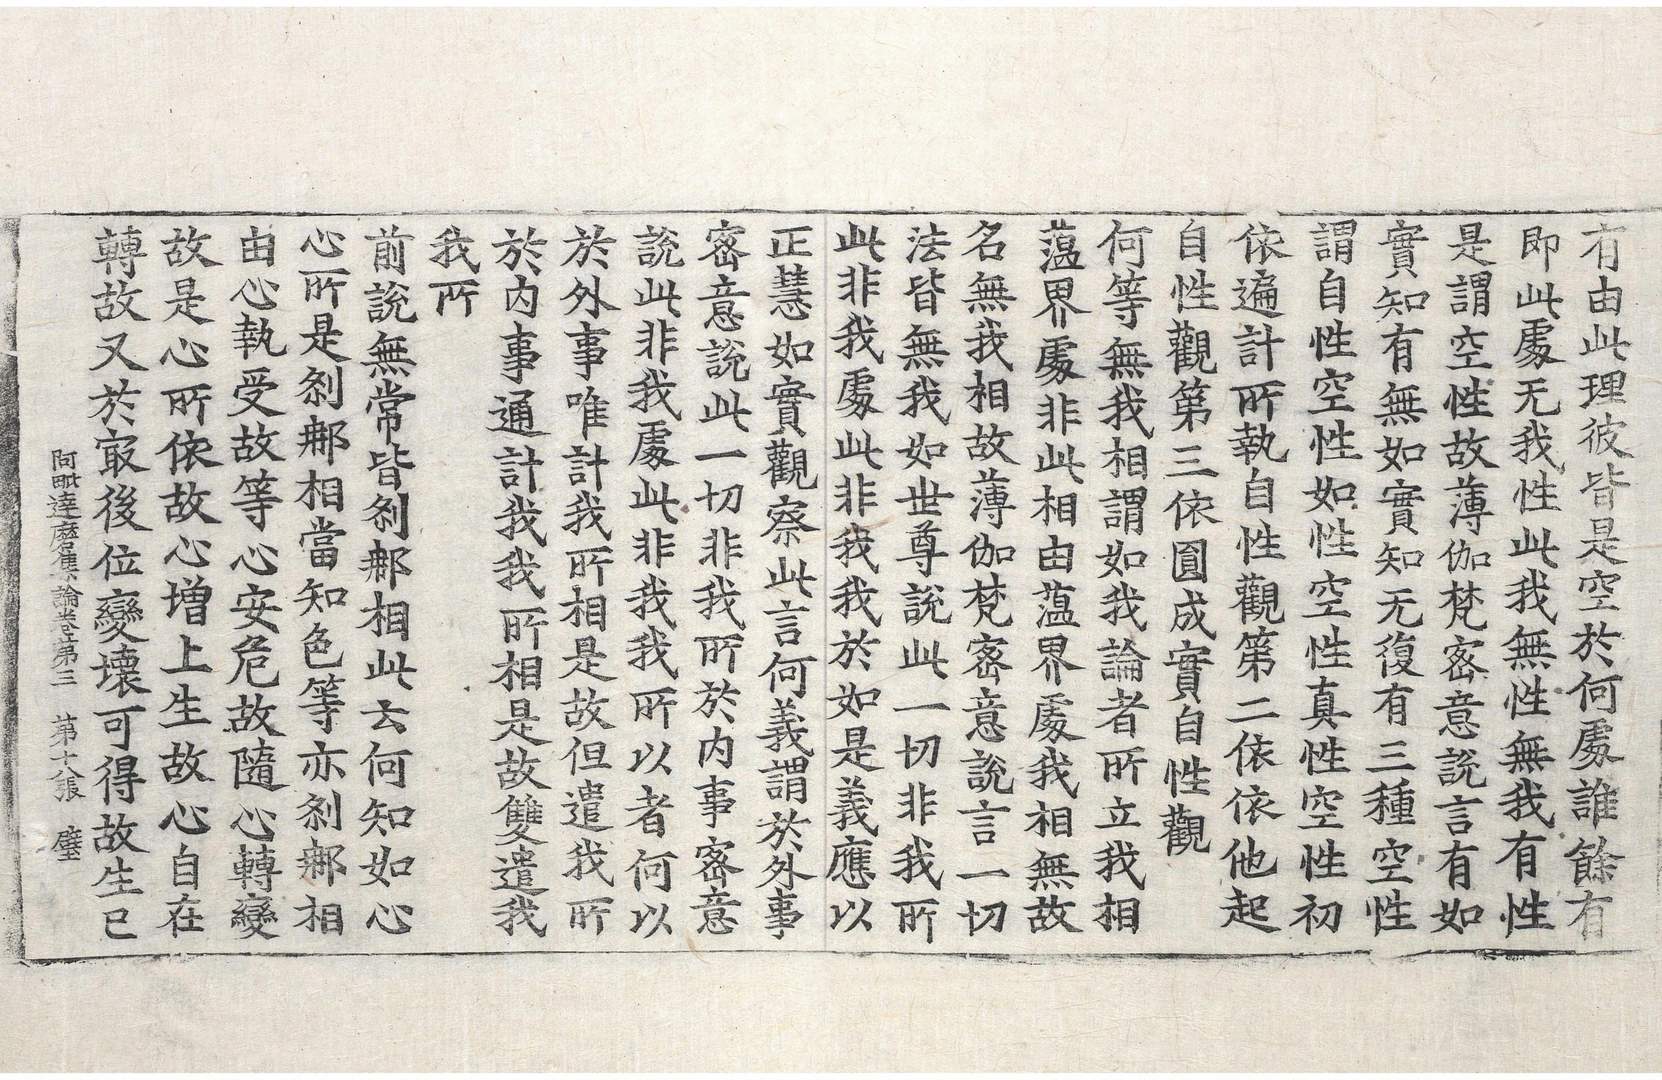 有由此理彼皆是空於何處誰餘有
即此處无我性此我無性無我有性
是謂空性故薄伽梵密意說言有如
實知有無如實知无復有三種空性
謂自性空性如性空性真性空性初
依遍計所執自性觀第二依依他起
自性觀第三依圓成實自性觀
何等無我相謂如我論者所立我相
蕰界處非此相由蕰界處我相無故
名無我相故薄伽梵密意說言一切
法皆無我如世尊說此一切非我所
此非我處此非我我於如是義應以
正慧如實觀察此言何義謂於外事
密意說此一切非我所於内事密意
說此非我處此非我我所以者何以
於外事唯計我所相是故但遣我所
於内事通計我我所相是故雙遣我
我所
前說無常皆剎那相此云何知如心
心所是剎那相當知色等亦剎那相
由心執受故等心安危故隨心轉變
故是心所依故心增上生故心自在
轉故又於寂後位變壞可得故生已
阿毗達磨集論卷第三　第十八張　璧